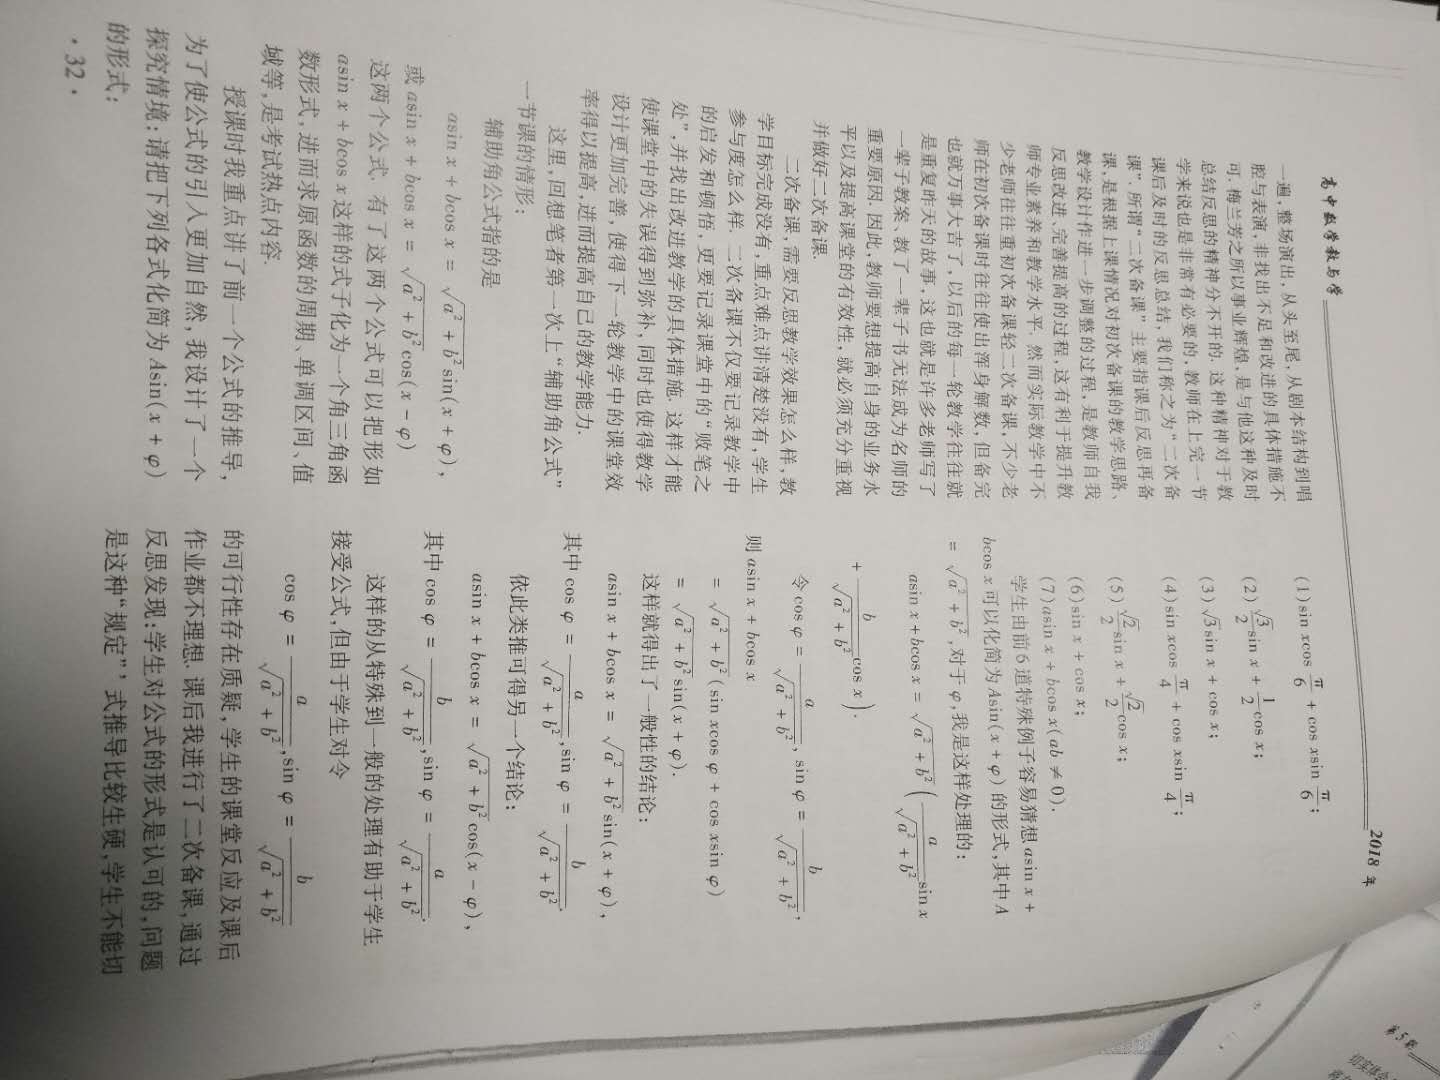 高中数学教与学
2018 年
一遍,整场演出,从头至尾,从剧本结构到唱
腔与表演,非找出不足和改进的具体措施不
可. 梅兰芳之所以事业辉煌,是与他这种及时
总结反思的精神分不开的. 这种精神对于教
学来说也是非常有必要的,教师在上完一节
课后及时的反思总结,我们称之为“二次备
课”. 所谓“二次备课”主要指课后反思再备
课,是根据上课情况对初次备课的教学思路、
教学设计作进一步调整的过程,是教师自我
反思改进、完善提高的过程,这有利于提升教
师专业素养和教学水平. 然而实际教学中不
少老师往往重初次备课轻二次备课,不少老
师在初次备课时往往使出浑身解数,但备完
也就万事大吉了,以后的每一轮教学往往就
是重复昨天的故事,这也就是许多老师写了
一辈子教案、教了一辈子书无法成为名师的
重要原因. 因此,教师要想提高自身的业务水
平以及提高课堂的有效性,就必须充分重视
并做好二次备课.
二次备课,需要反思教学效果怎么样,教
学目标完成没有,重点难点讲清楚没有,学生
参与度怎么样. 二次备课不仅要记录教学中
的启发和顿悟,更要记录课堂中的“败笔之
处”,并找出改进教学的具体措施. 这样才能
使课堂中的失误得到弥补,同时也使得教学
设计更加完善,使得下一轮教学中的课堂效
率得以提高,进而提高自己的教学能力.
这里,回想笔者第一次上“辅助角公式”
一节课的情形:
辅助角公式指的是
asin x + bcos x = √(a² + b²)sin(x + φ),
或 asin x + bcos x = √(a² + b²)cos(x − φ)
这两个公式. 有了这两个公式可以把形如
asin x + bcos x 这样的式子化为一个角三角函
数形式,进而求原函数的周期、单调区间、值
域等,是考试热点内容.
授课时我重点讲了前一个公式的推导,
为了使公式的引入更加自然,我设计了一个
探究情境:请把下列各式化简为 Asin(x + φ)
的形式:
· 32 ·
(1) sin xcos π/6 + cos xsin π/6;
(2) √3/2 sin x + 1/2 cos x;
(3) √3sin x + cos x;
(4) sin xcos π/4 + cos xsin π/4;
(5) √2/2 sin x + √2/2 cos x;
(6) sin x + cos x;
(7) asin x + bcos x(ab ≠ 0).
学生由前6道特殊例子容易猜想 asin x +
bcos x 可以化简为 Asin(x + φ) 的形式,其中 A
= √(a² + b²),对于 φ,我是这样处理的:
asin x + bcos x = √(a² + b²)(a/√(a² + b²) sin x
+ b/√(a² + b²) cos x).
令 cos φ = a/√(a² + b²), sin φ = b/√(a² + b²),
则 asin x + bcos x
= √(a² + b²)(sin xcos φ + cos xsin φ)
= √(a² + b²)sin(x + φ).
这样就得出了一般性的结论:
asin x + bcos x = √(a² + b²)sin(x + φ),
其中 cos φ = a/√(a² + b²), sin φ = b/√(a² + b²).
依此类推可得另一个结论:
asin x + bcos x = √(a² + b²)cos(x − φ),
其中 cos φ = b/√(a² + b²), sin φ = a/√(a² + b²).
这样的从特殊到一般的处理有助于学生
接受公式,但由于学生对令
cos φ = a/√(a² + b²), sin φ = b/√(a² + b²)
的可行性存在质疑,学生的课堂反应及课后
作业都不理想. 课后我进行了二次备课,通过
反思发现:学生对公式的形式是认可的,问题
是这种“规定”式推导比较生硬,学生不能切
第5期